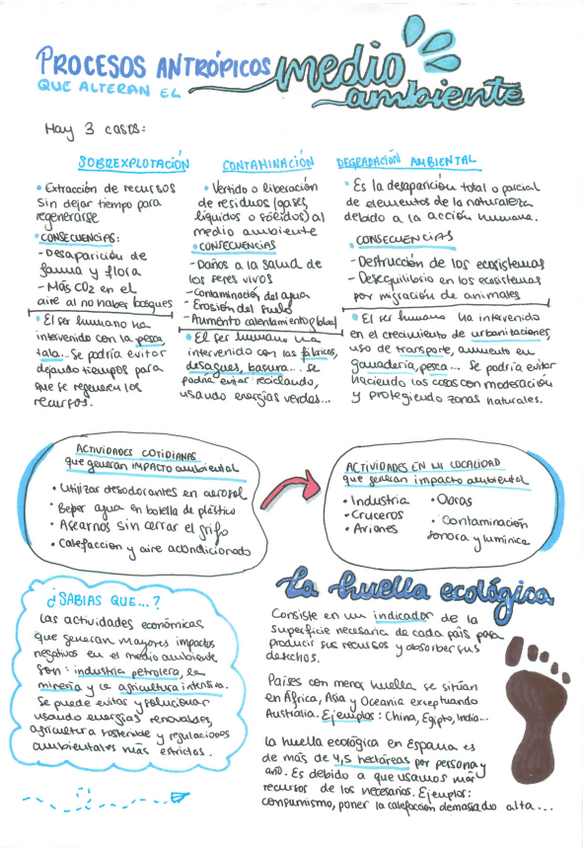 PROCESOS ANTRÓPICOS
QUE ALTERAN EL
medio
ambiente
Hay 3 casos:
SOBREXPLOTACIÓN
• Extracción de recursos
sin dejar tiempo para
regenerarse
• CONSECUENCIAS:
- Desaparición de
fauna y flora
- Más CO2 en el
aire al no haber bosques
• El ser humano ha
intervenido con la pesca,
tala... Se podría evitar
dejando tiempos para
que se regeneren los
recursos.
CONTAMINACIÓN
• Vertido o liberación
de residuos (gases,
líquidos o sólidos) al
medio ambiente
• CONSECUENCIAS
- Daños a la salud de
los seres vivos
- Contaminación del agua
- Erosión del suelo
- Aumento calentamiento global
• El ser humano ha
intervenido con las fábricas,
desagües, basura... se
podría evitar reciclando,
usando energías verdes...
DEGRADACIÓN AMBIENTAL
• Es la desaparición total o parcial
de elementos de la naturaleza
debido a la acción humana.
• CONSECUENCIAS
- Destrucción de los ecosistemas
- Desequilibrio en los ecosistemas
por migración de animales
• El ser humano ha intervenido
en el crecimiento de urbanitaciones,
uso de transporte, aumento en
ganadería, pesca... Se podría evitar
haciendo las cosas con moderación
y protegiendo zonas naturales.
ACTIVIDADES COTIDIANAS
que generan IMPACTO ambiental
• Utilizar desodorantes en aerosol
• Beber agua en botella de plástico
• Asearnos sin cerrar el grifo
• Calefacción y aire acondicionado
ACTIVIDADES EN MI LOCALIDAD
que generan impacto ambiental
• Industria
• Cruceros
• Aviones
• Obras
• Contaminación
sonora y lumínica
¿SABIAS QUE...?
Las actividades económicas
que generan mayores impactos
negativos en el medio ambiente
son: industria petrolera, la
minería y la agricultura intensiva.
Se puede evitar y solucionar
usando energías renovables,
agricultura sostenible y regulaciones
ambientales más estrictas.
La huella ecológica
Consiste en un indicador de la
superficie necesaria de cada país para
producir sus recursos y absorber sus
desechos.
Países con menor huella se sitúan
en África, Asia y Oceania exceptuando
Australia. Ejemplos: China, Egipto, India...
La huella ecológica en España es
de más de 4,5 hectáreas por persona y
año. Es debido a que usamos más
recursos de los necesarios. Ejemplos:
consumismo, poner la calefacción demasiado alta...